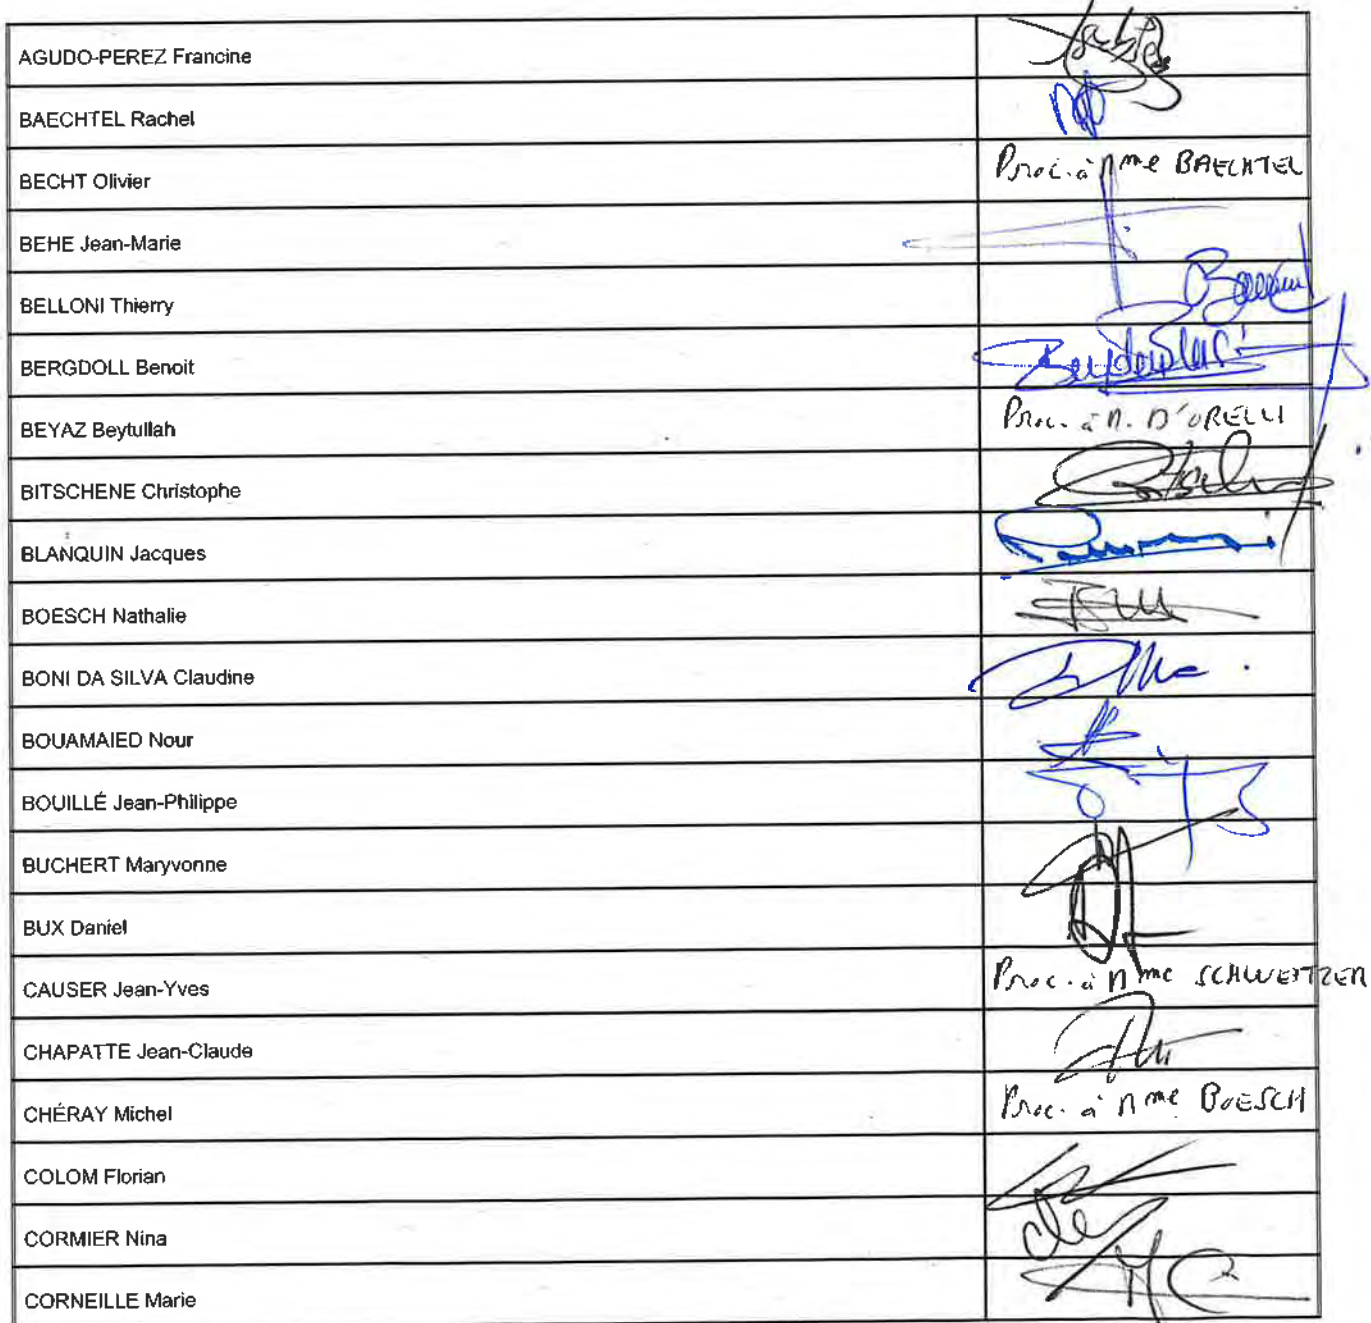 AGUDO-PEREZ Francine
BAECHTEL Rachel
BECHT Olivier
Proc. à Mme BAECHTEL
BEHE Jean-Marie
BELLONI Thierry
BERGDOLL Benoit
BEYAZ Beytullah
Proc. à M. D'ORELLI
BITSCHENE Christophe
BLANQUIN Jacques
BOESCH Nathalie
BONI DA SILVA Claudine
BOUAMAIED Nour
BOUILLÉ Jean-Philippe
BUCHERT Maryvonne
BUX Daniel
CAUSER Jean-Yves
Proc. à Mme SCHWEITZER
CHAPATTE Jean-Claude
CHÉRAY Michel
Proc. à Mme BOESCH
COLOM Florian
CORMIER Nina
CORNEILLE Marie